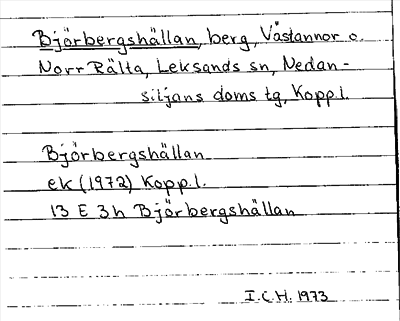 Björbergshällan, berg, Västannor o.
Norr Rälta, Leksands sn, Nedan-
siljans doms tg, Kopp.l.
Björbergshällan
ek (1972) Kopp.l.
13 E 3h Björbergshällan
I.C.H. 1973